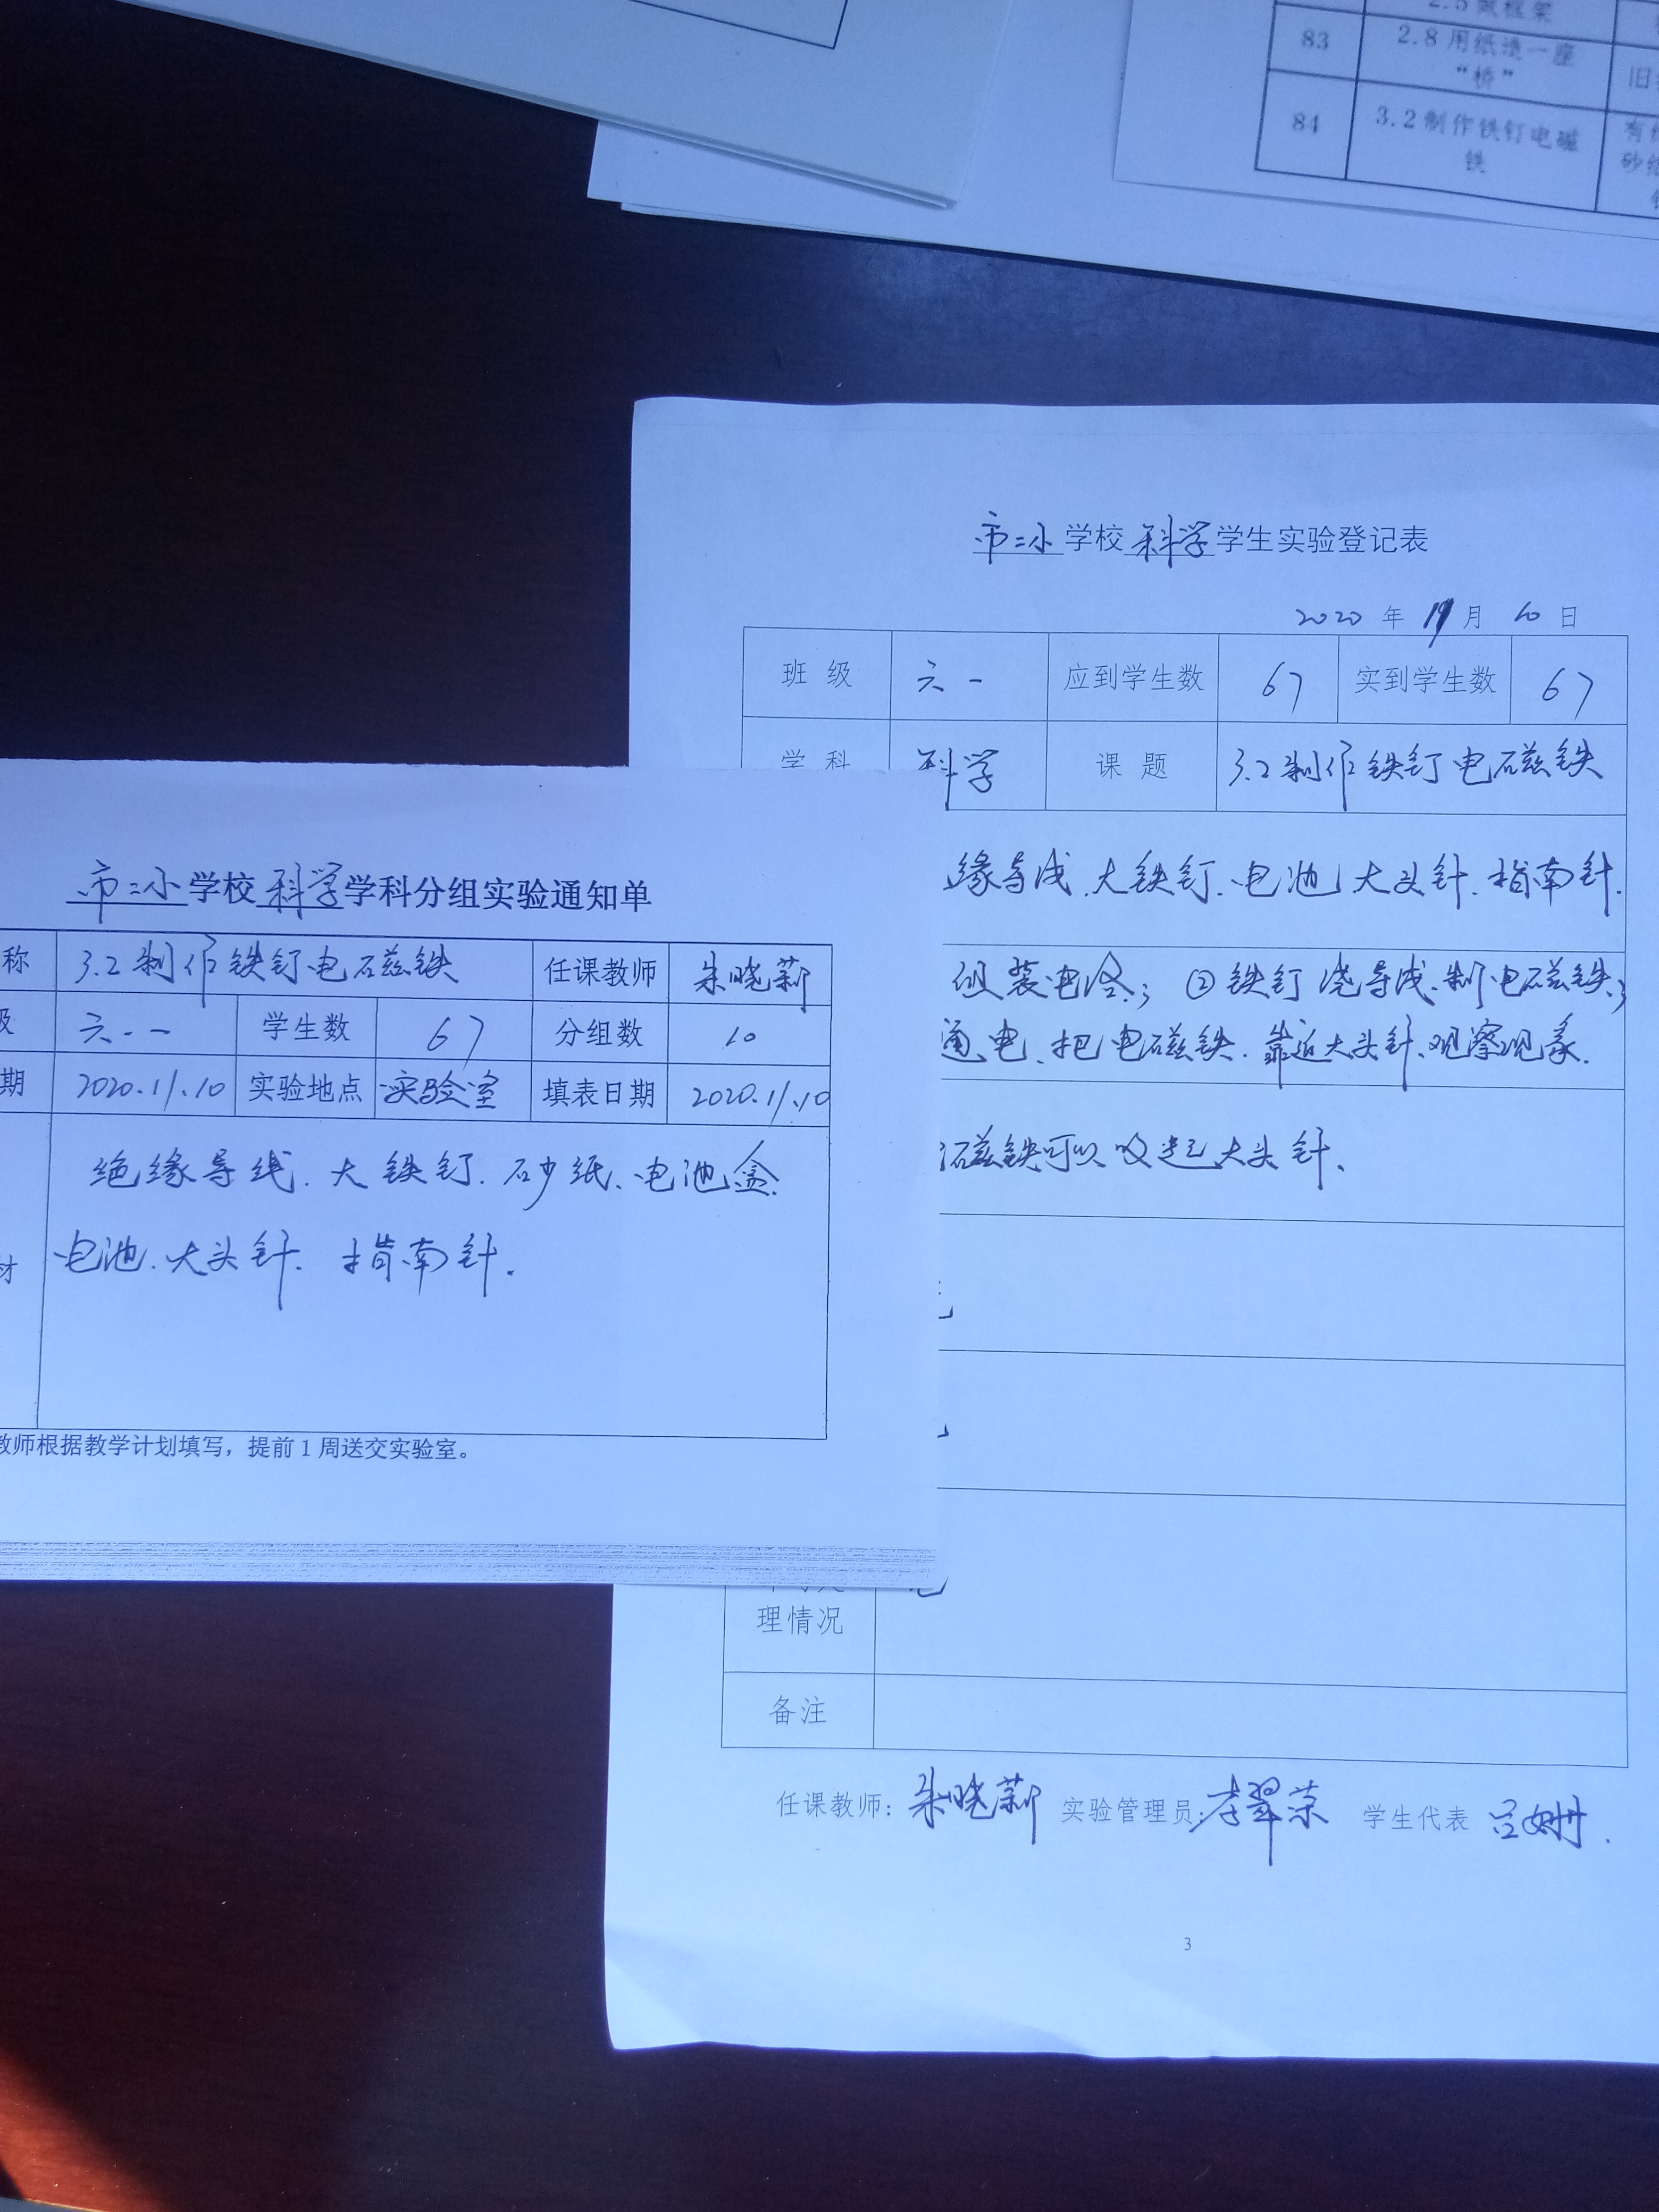 2.5做框架
83
2.8用纸造一座
“桥”
旧
84
3.2制作铁钉电磁
铁
有
砂
市二小学校科学学生实验登记表
2020年11月10日
班级 六一 应到学生数 67 实到学生数 67
学科 科学 课题 3.2制作铁钉电磁铁
缘导线.大铁钉.电池.大头针.指南针.
组装电路;②铁钉绕导线.制电磁铁;
通电.把电磁铁.靠近大头针.观察现象.
磁铁可以吸起大头针.
理情况
备注
任课教师: 朱晓新 实验管理员: 李翠荣 学生代表 吕姗.
3
市二小学校科学学科分组实验通知单
称 3.2制作铁钉电磁铁 任课教师 朱晓新
级 六.一 学生数 67 分组数 10
期 2020.11.10 实验地点 实验室 填表日期 2020.11.10
绝缘导线.大铁钉.砂纸.电池盒.
材 电池.大头针.指南针.
教师根据教学计划填写，提前1周送交实验室。